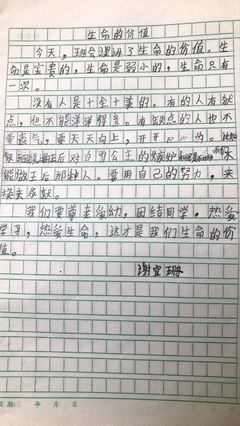 生命的价值
今天，班会课讲了生命的价值。生
命是宝贵的，生命是弱小的，生命只有
一次。
没有人是十全十美的。有的人有优
点，但不能洋洋得意。有缺点的人也不
要丧气，要天天向上，开开心心的。比如
王后对白雪公主的嫉妒
能做王后那种人。要用自己的努力，来
换来
我们要尊老爱幼，团结同学，热爱
学习，热爱生命，这才是我们生命的价
值。
谢宜珊
年 月 日